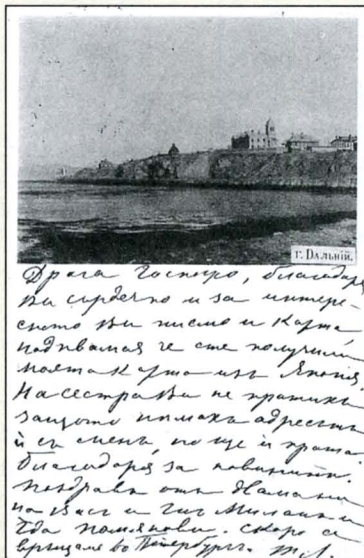 г. Дальній.
Драга Госпожо, благодаря
Ви сърдечно и за интере-
сното Ви писмо и карта
надявамъ се че сте получили
моята карта изъ Японія
На сестра Ви не пратихъ
защото нямахъ адресътъ
ѝ съ мене, но ще ѝ пратя
Благодаря за новинитѣ.
поздрави отъ
на Васъ и
скоро се
връщаме въ Петербургъ.